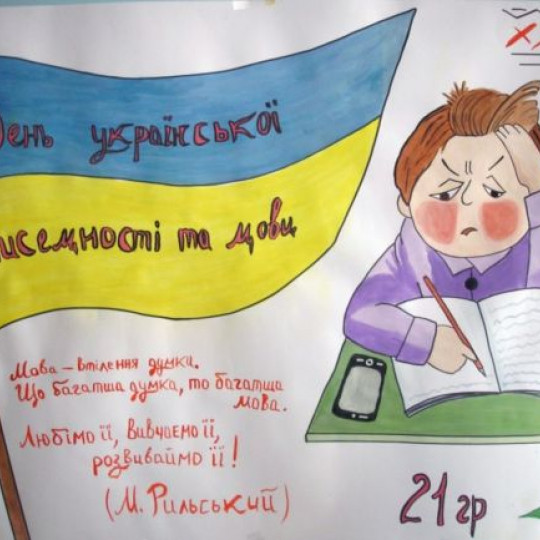 День української
исемності та мови
Мова – втілення думки.
Що багатша думка, то багатша
мова.
Любімо її, Вивчаємо її,
розвиваймо її!
(М. Рильський)
21 гр